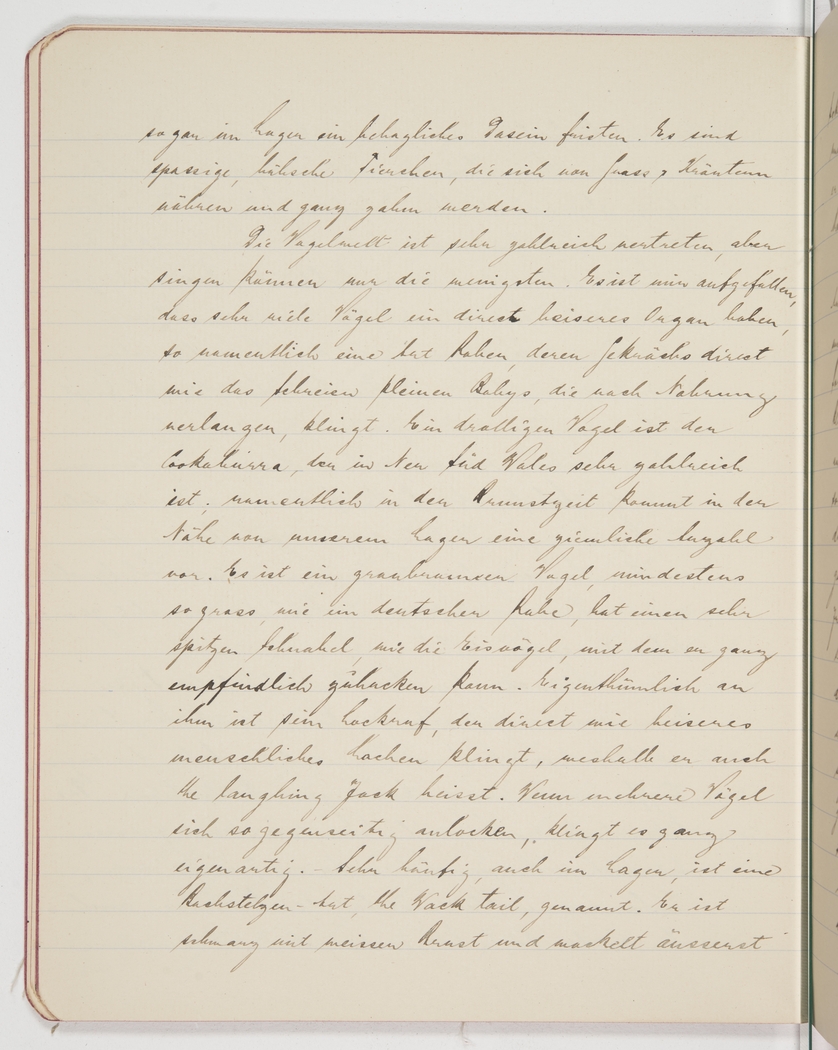 sogar im Lager ein behagliches Dasein fristen. Es sind
spassige, hübsche Tierchen, die sich von Grass & Kräutern
nähren und ganz zahm werden.
Die Vogelwelt ist sehr zahlreich vertreten, aber
singen können nur die wenigsten. Es ist mir aufgefallen,
dass sehr viele Vögel ein direct heiseres Organ haben,
so namentlich eine Art Raben, deren Gekrächs direct
wie das Schreien kleiner Babys, die nach Nahrung
verlangen, klingt. Ein drolliger Vogel ist der
Cookaburra, der in Neu Süd Wales sehr zahlreich
ist; namentlich in der Brunstzeit kommt in der
Nähe von unserem Lager eine ziemliche Anzahl
vor. Es ist ein graubrauner Vogel, mindestens
so gross, wie ein deutscher Rabe, hat einen sehr
spitzen Schnabel, wie die Eisvögel, mit dem er ganz
empfindlich zuhacken kann. Eigenthümlich an
ihm ist sein Lockruf, der direct wie heiseres
menschliches Lachen klingt, weshalb er auch
the laughing Jack heisst. Wenn mehrere Vögel
sich so gegenseitig anlocken, klingt es ganz
eigenartig. - Sehr häufig, auch im Lager, ist eine
Bachstelzen-Art, the Wack tail, genannt. Er ist
schwarz mit weisser Brust und wackelt äusserst